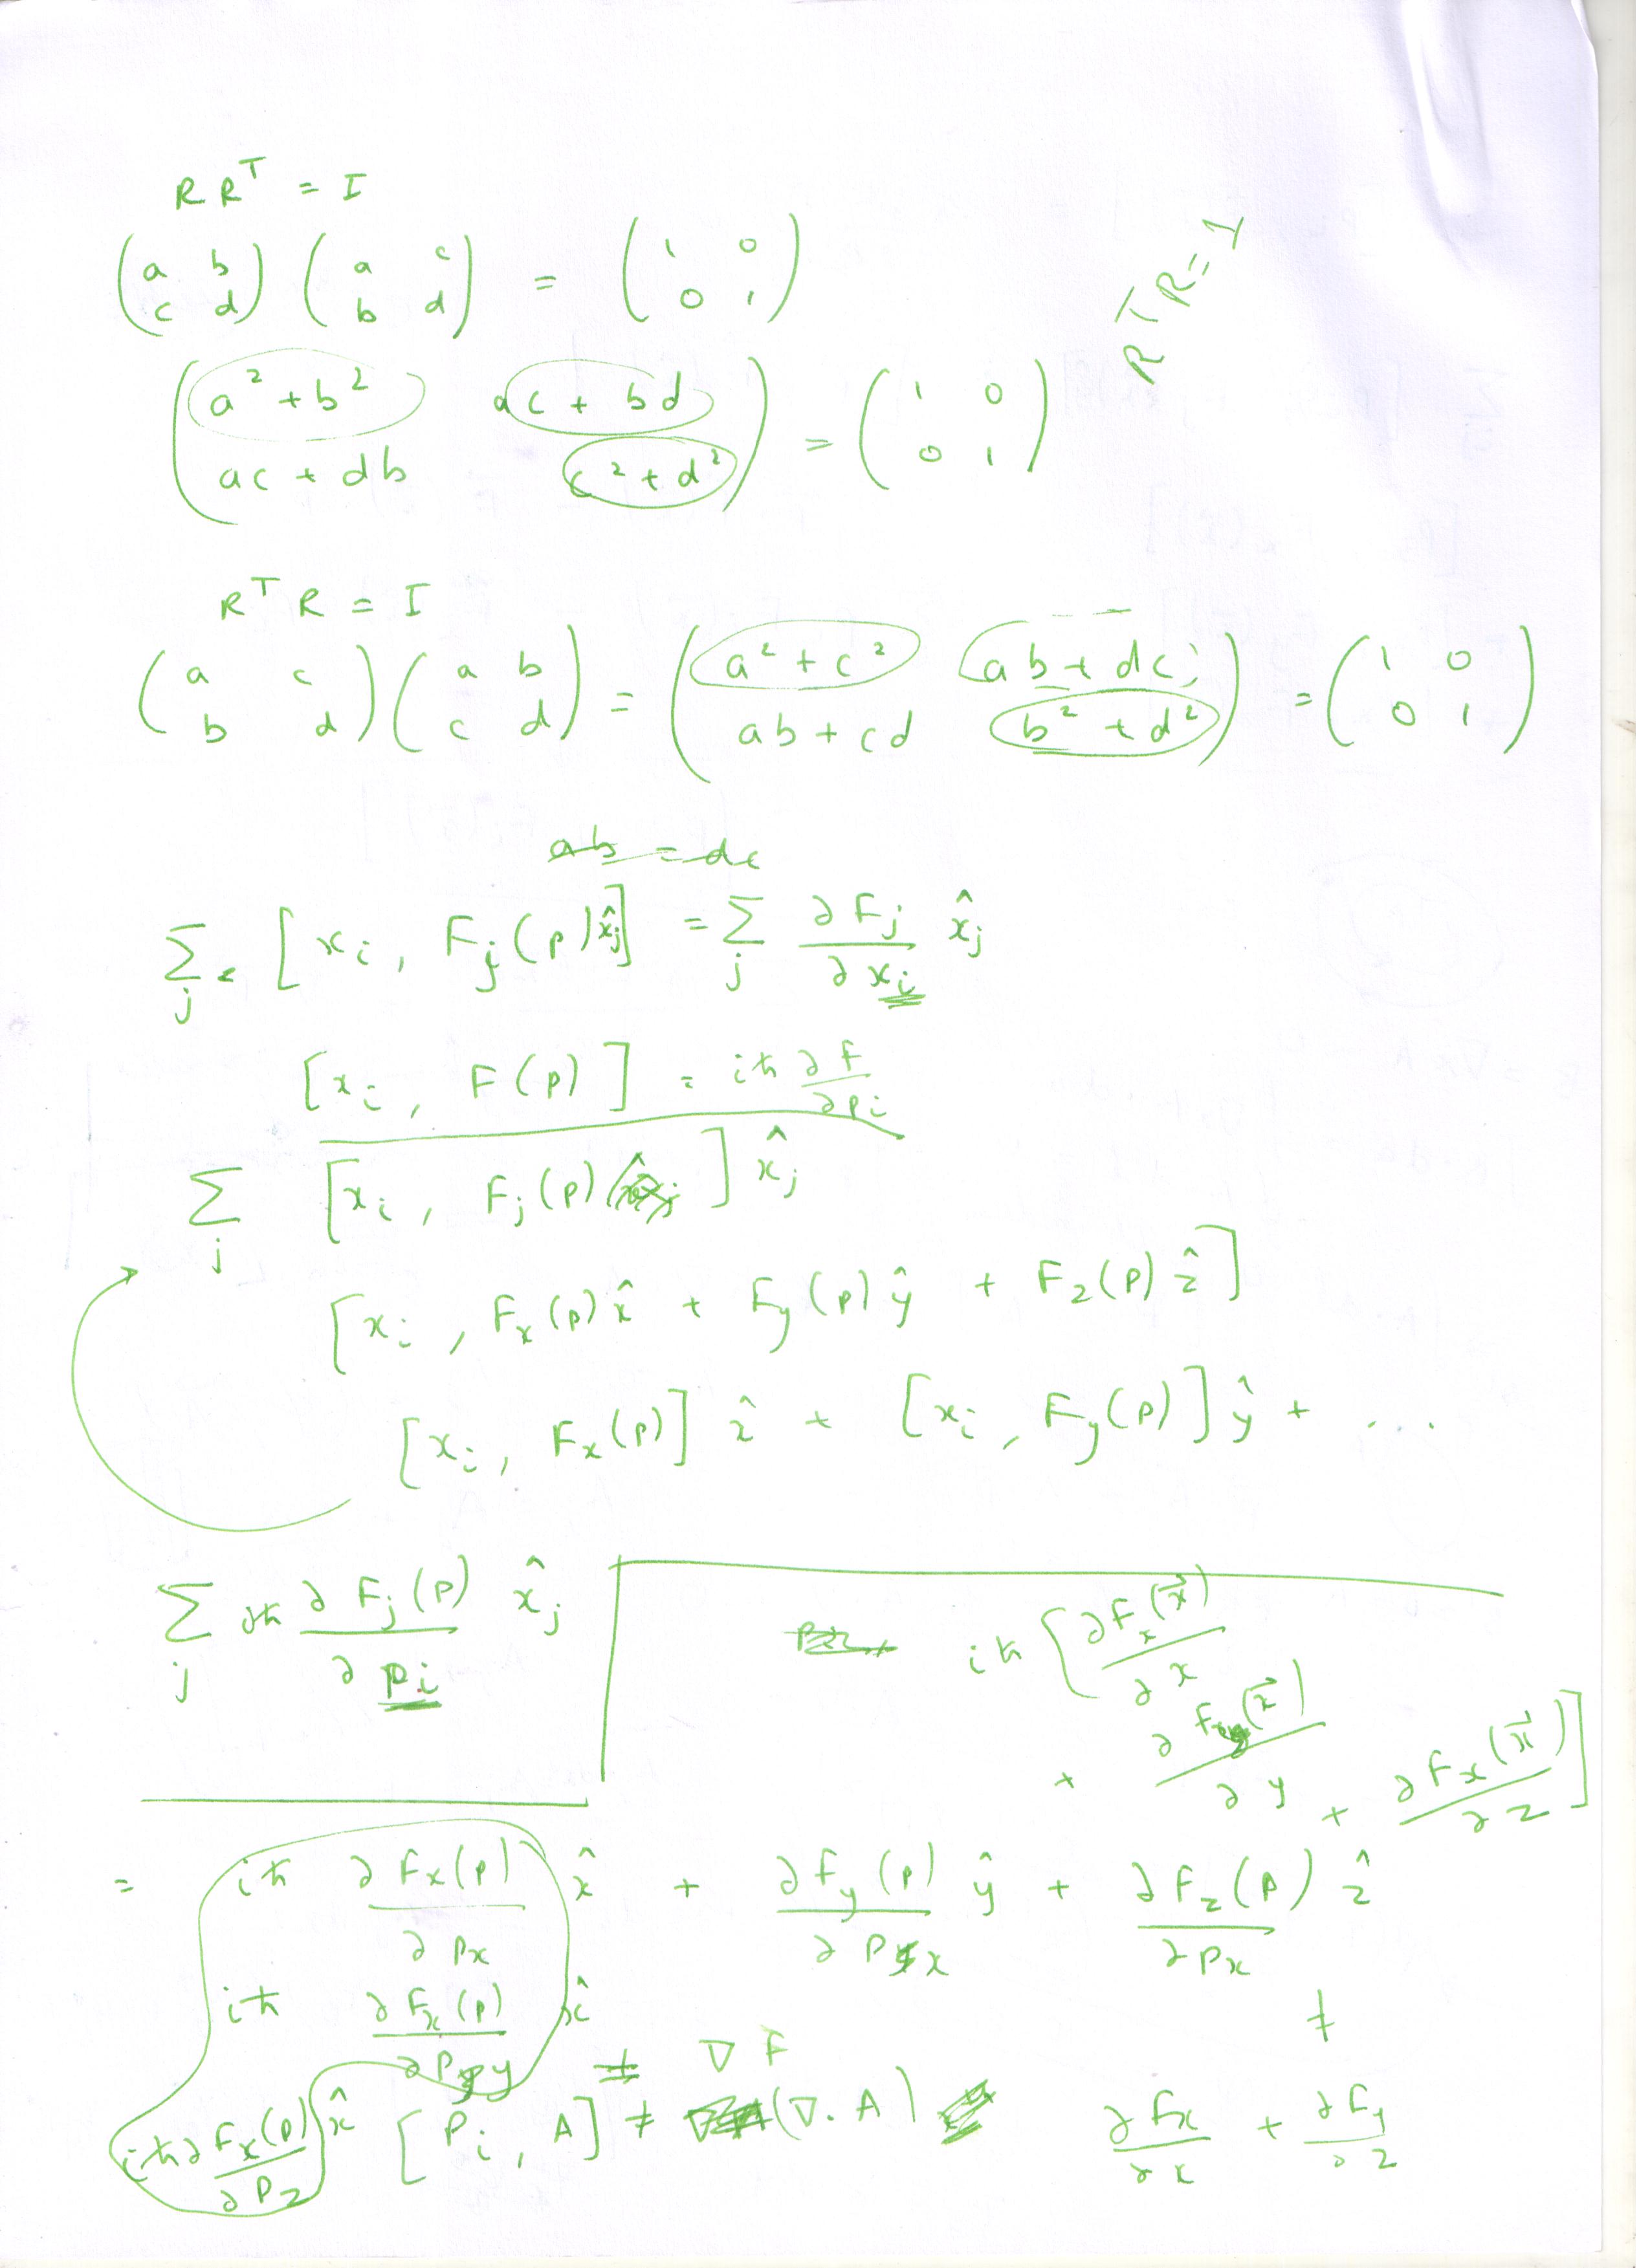 R Rᵀ = I
( a b ; c d ) ( a c ; b d ) = ( 1 0 ; 0 1 )
Rᵀ R = 1
( a² + b² ac + bd ; ac + db c² + d² ) = ( 1 0 ; 0 1 )
Rᵀ R = I
( a c ; b d ) ( a b ; c d ) = ( a² + c² ab + dc ; ab + cd b² + d² ) = ( 1 0 ; 0 1 )
ab = dc
∑_j [ x_i , F_j (p) x̂_j ] = ∑_j ∂F_j / ∂x_i x̂_j
[ x_i , F (p) ] = iħ ∂F / ∂p_i
∑_j [ x_i , F_j (p) ] x̂_j
[ x_i , F_x (p) x̂ + F_y (p) ŷ + F_z (p) ẑ ]
[ x_i , F_x (p) ] x̂ + [ x_i , F_y (p) ] ŷ + ...
∑_j iħ ∂F_j (p) / ∂p_i x̂_j
iħ [ ∂F_x (x⃗) / ∂x
+ ∂F (x⃗) / ∂y + ∂F_x (x⃗) / ∂z ]
= iħ ∂F_x (p) / ∂p_x x̂ + ∂F_y (p) / ∂p_x ŷ + ∂F_z (p) / ∂p_x ẑ
iħ ∂F_x (p) / ∂p_y x̂
≠
≠ ∇F
iħ ∂F_x (p) / ∂p_z x̂ [ P_i , A ] ≠ (∇ . A)
∂F_x / ∂x + ∂F_y / ∂z